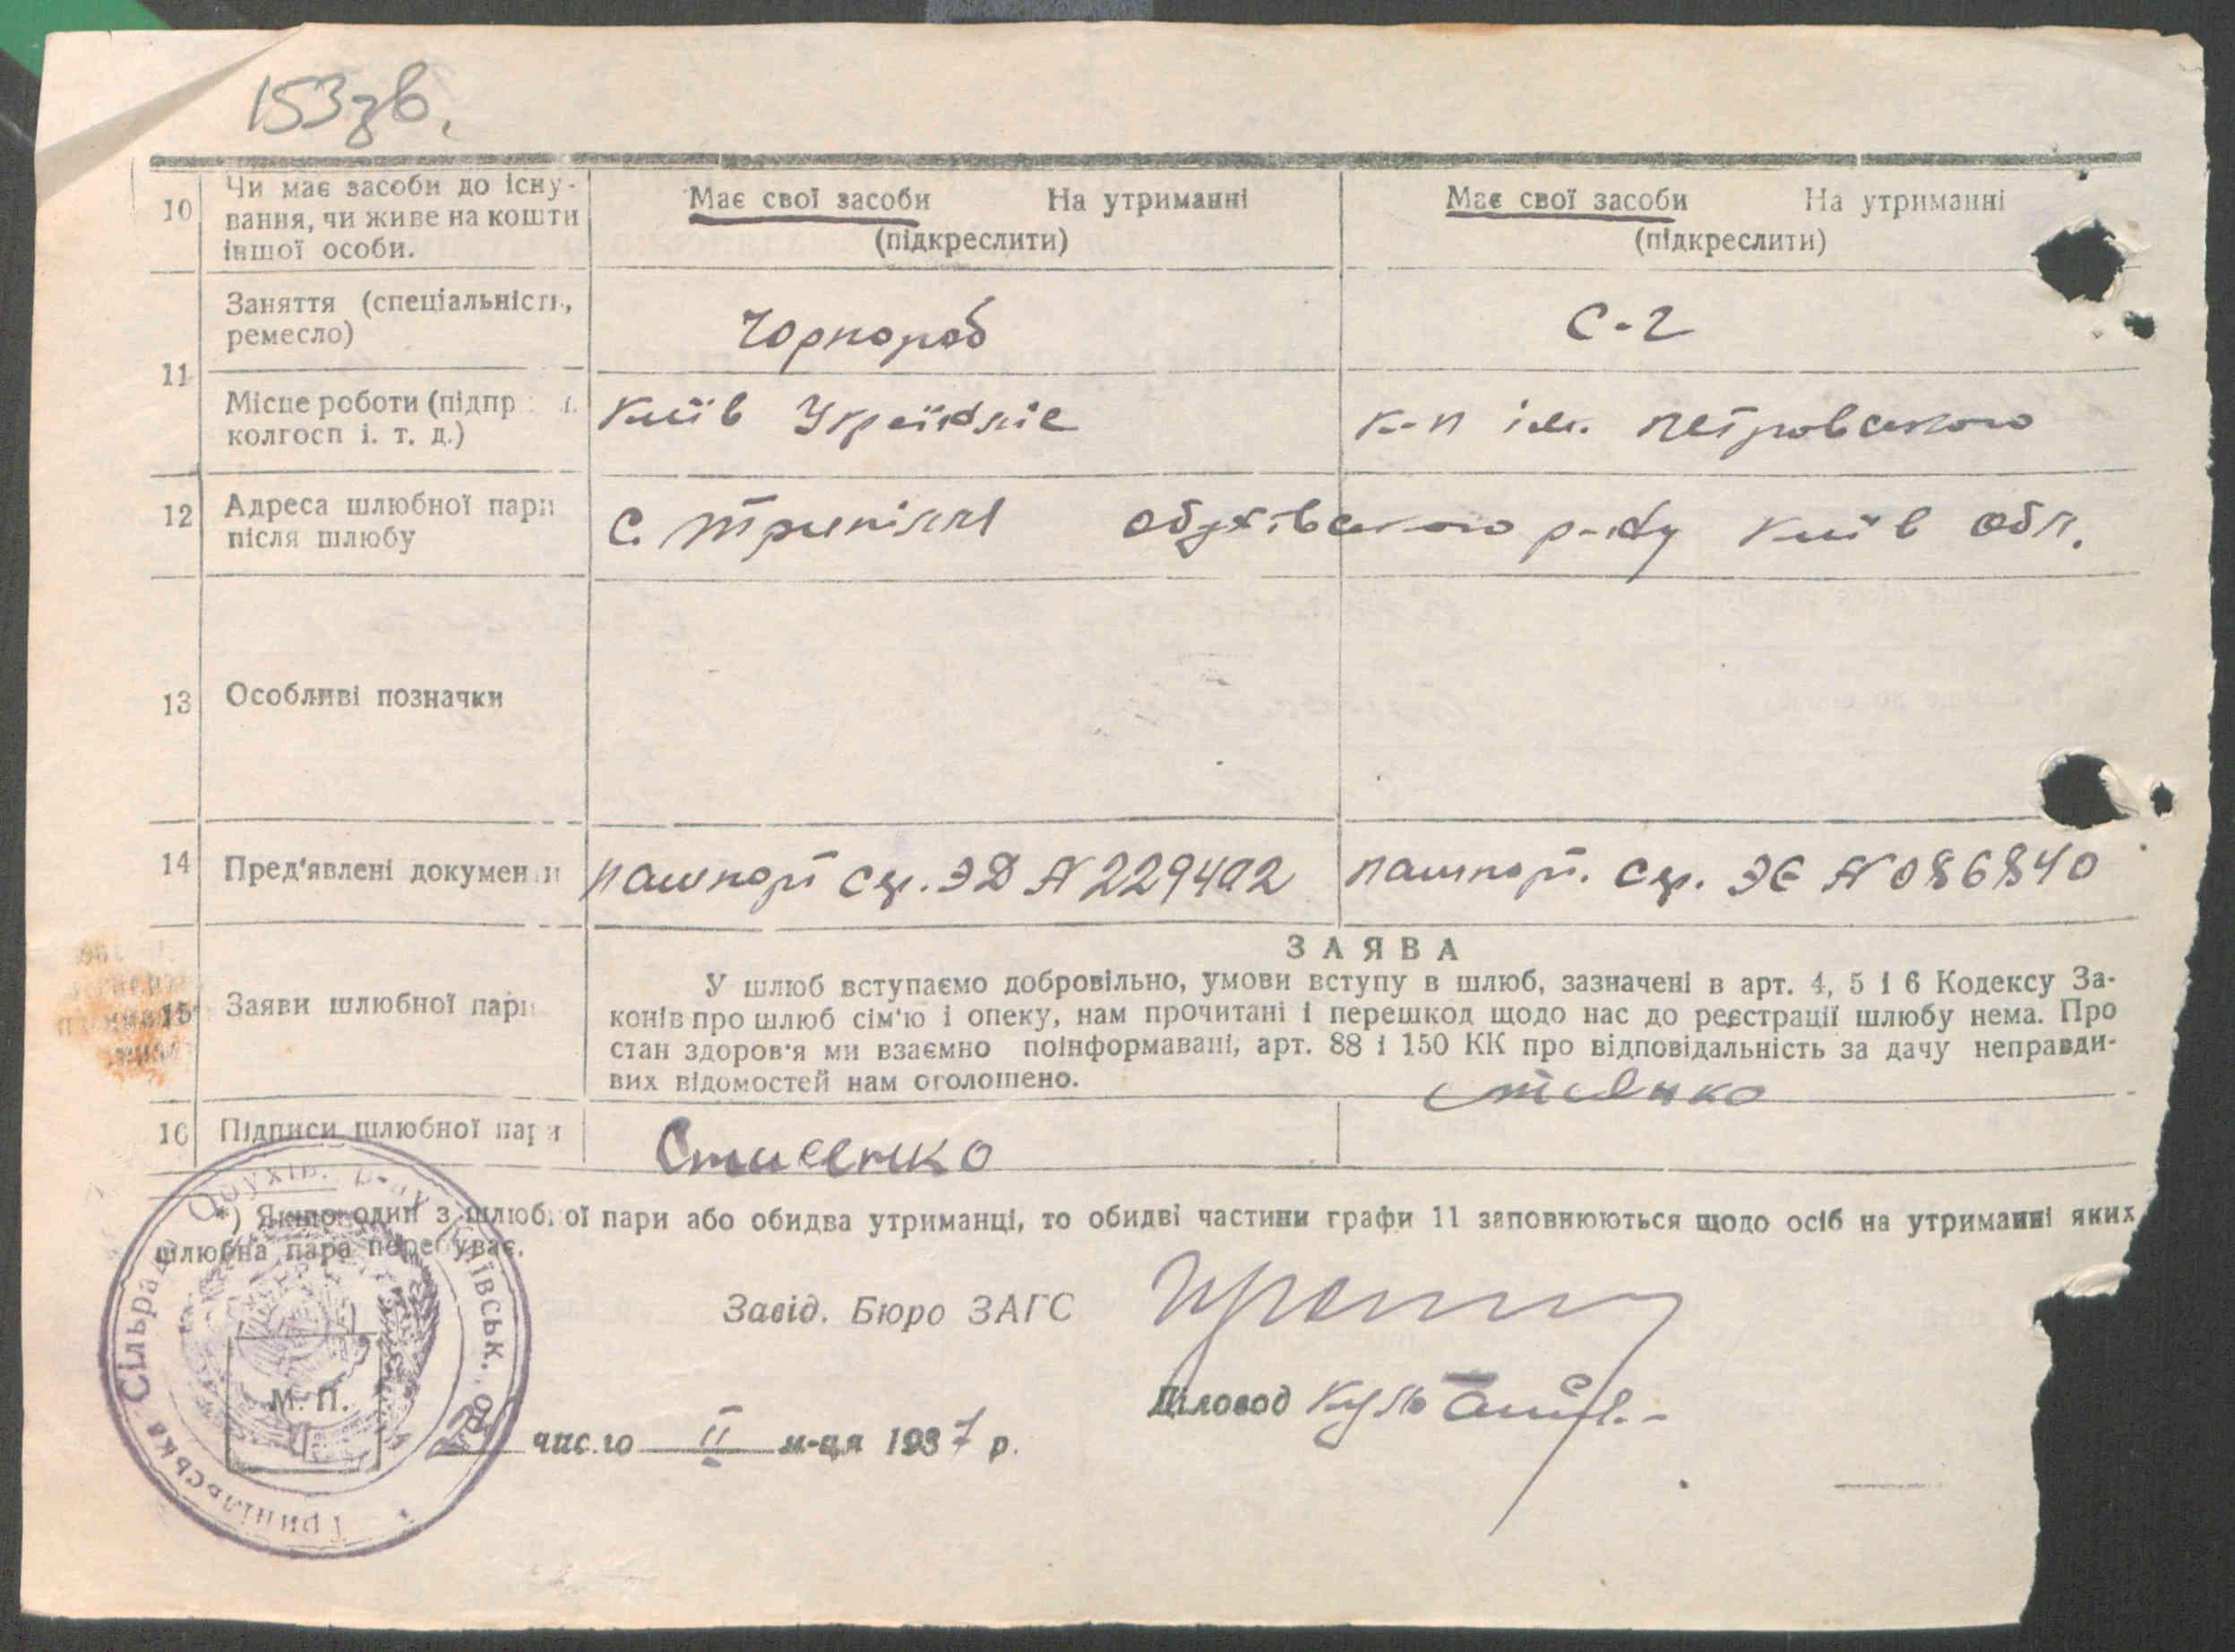 153зв.
10 Чи має засоби до існу-
вання, чи живе на кошти
іншої особи.
Має свої засоби На утриманні
(підкреслити)
Має свої засоби На утриманні
(підкреслити)
11
Заняття (спеціальність,
ремесло)
Чорнороб
С-г
Місце роботи (підпр
колгосп і. т. д.)
Київ
к-п ім. Петровського
12 Адреса шлюбної пари
після шлюбу
С. Трипілля Обухівського р-ну Київ обл.
13 Особливі позначки
14 Пред'явлені докумен и
пашпорт сер. ЭД № 229402
пашпорт. сер. ЭЄ № 086840
15 Заяви шлюбної пари
ЗАЯВА
У шлюб вступаємо добровільно, умови вступу в шлюб, зазначені в арт. 4, 5 і 6 Кодексу За-
конів про шлюб сім'ю і опеку, нам прочитані і перешкод щодо нас до реєстрації шлюбу нема. Про
стан здоров'я ми взаємно поінформавані, арт. 88 і 150 КК про відповідальність за дачу неправди-
вих відомостей нам оголошено.
16 Підписи шлюбної пари
Стисенко
*) Якщо один з шлюбної пари або обидва утриманці, то обидві частини графи 11 заповнюються щодо осіб на утриманні яких
шлюбна пара перебуває.
Завід. Бюро ЗАГС
Діловод
М. П.
число II м-ця 1937 р.
Трипільська Сільрада Обухів. р-ну Київськ. обл